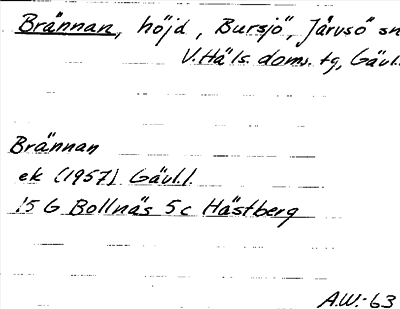 Brännan, höjd, Bursjö, Järvsö sn
V. Häls. doms. tg, Gävl.
Brännan
ek (1957) Gävl.l.
15 G Bollnäs 5c Hästberg
A.W.-63